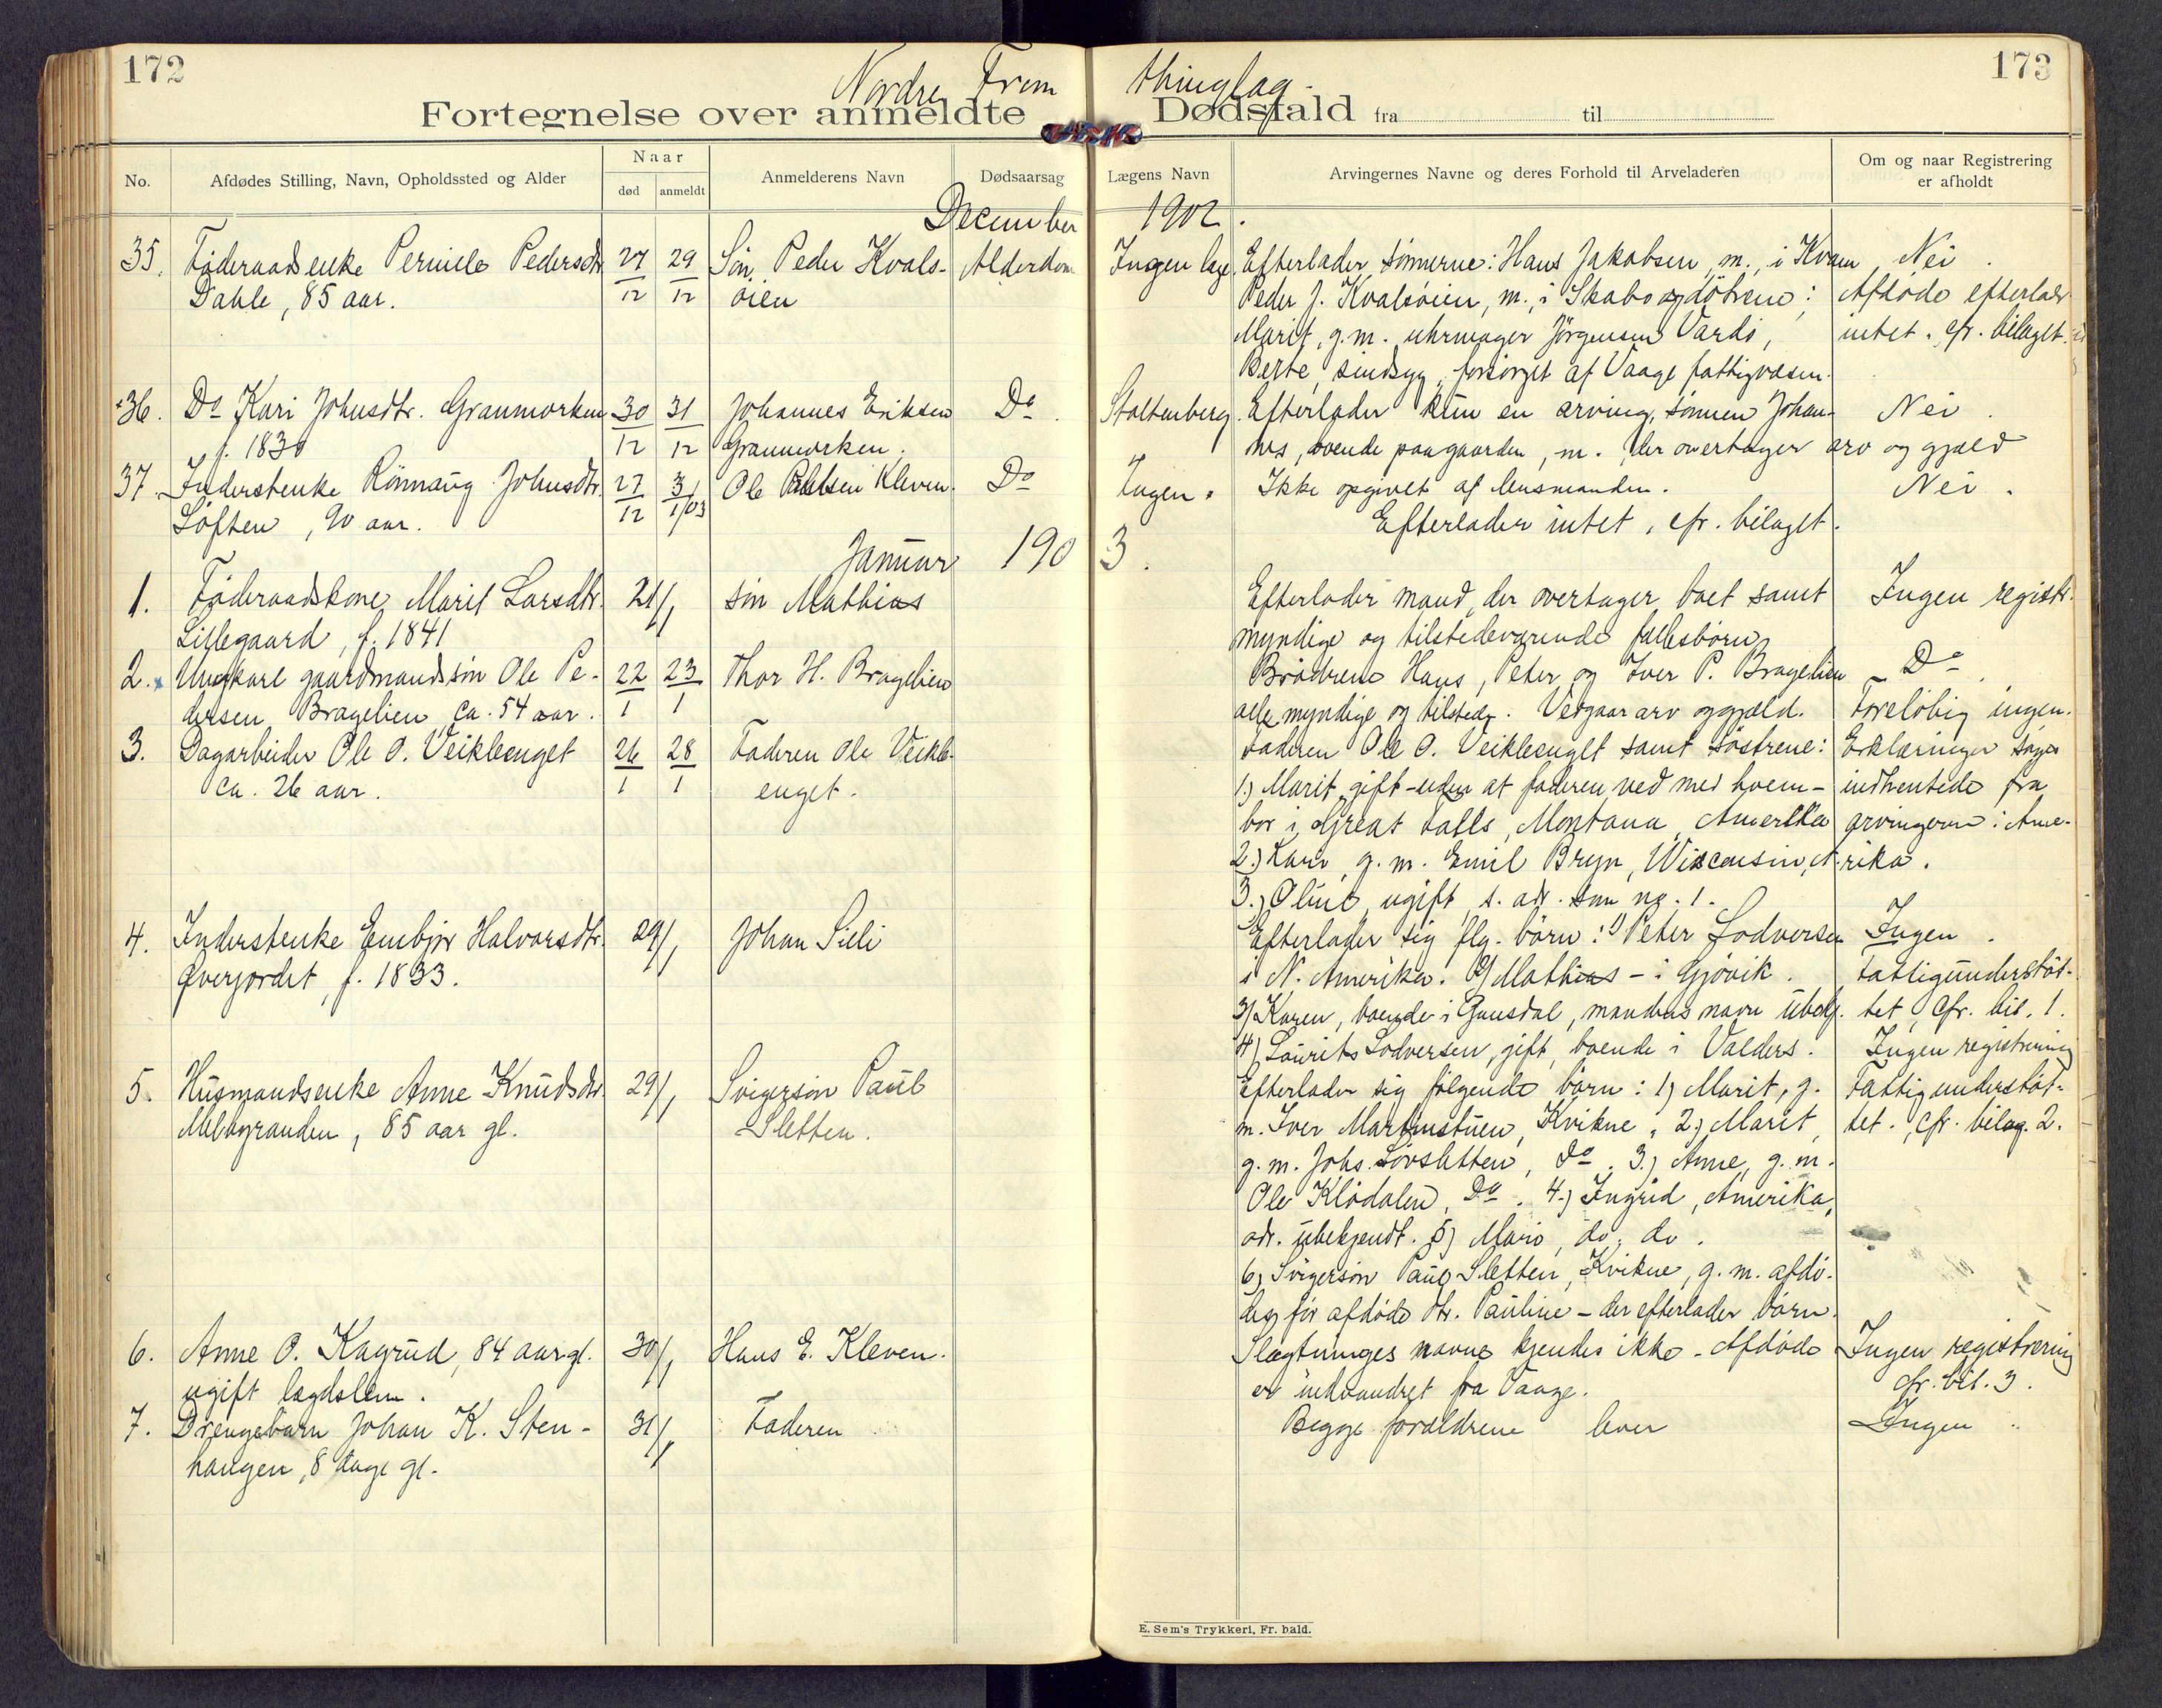 172
173
Nordre Fron thinglag.
Fortegnelse over anmeldte Dødsfald fra til
No.
Afdødes Stilling, Navn, Opholdssted og Alder
Naar
død
anmeldt
Anmelderens Navn
Dødsaarsag
Lægens Navn
Arvingernes Navne og deres Forhold til Arveladeren
Om og naar Registrering
er afholdt
December 1902.
35. Føderaadsenke Pernille Pedersdtr. 27/12 29/12 Søn Peder Kvals- Alderdom Ingen læge Efterlader sønnerne: Hans Jakobsen, m., i Kvam Nei.
Dahle, 85 aar. øien Peder J. Kvalsøien, m., i Skabo og døtrene: Afdøde efterlader
Marit, g. m. uhrmager Jørgensen Vardø, intet. cfr. bilaget.
Berte, sindsyg, forsørget af Vaage fattigvæsen.
36. Do Kari Johnsdtr. Granmorken 30/12 31/12 Johannes Eriksen Do. Stoltenberg. Efterlader kun en arving, sønnen Johan- Nei.
f. 1830 Granmorken. nes, boende paa gaarden, m. der overtager arv og gjæld
37. Inderstenke Rønnaug Johnsdtr. 27/12 3/1/03 Ole Kleven. Do Ingen. Ikke opgivet af lensmanden. Nei.
Løften, 90 aar. Efterlader intet, cfr. bilaget.
Januar 1903.
1. Føderaadskone Marit Larsdtr. 21/1 søn Mathias Efterlader mand, der overtager boet samt Ingen registr.
Lillegaard, f. 1841 myndige og tilstedeværende fællesbørn
2. x Ungkarl gaardmandssøn Ole Pe- 22/1 23/1 Thor H. Bragelien Brødrene Hans, Peter og Iver P. Bragelien Do.
dersen Bragelien, ca. 54 aar. alle myndige og tilstede. Vedgaar arv og gjæld. Foreløbig ingen.
3. Dagarbeider Ole O. Veikleenget 26/1 28/1 Faderen Ole Veikle- Faderen Ole O. Veikleenget samt søstrene: Erklæringer søges
ca. 26 aar. enget. 1.) Marit, gift - uden at faderen ved med hvem - indhentede fra
bor i Great Falls, Montana, Amerika arvingerne i Ame-
2.) Kari, g. m. Emil Bryn, Wisconsin, A. rika.
3.) Oline, ugift, s. adr. som no. 1.
4. Inderstenke Embjør Halvorsdtr. 29/1 Johan Silli Efterlader sig flg. børn: 1) Peter Lodversen Ingen.
Øverjordet, f. 1833. i N. Amerika. 2) Mathias - i Gjøvik. Fattigunderstøt-
3) Karen, boende i Gausdal, mandens navn ubekj. tet, cfr. bil. 1.
4) Laurits Lodversen, gift, boende i Valders. Ingen registrering
5. Husmandsenke Anne Knudsdtr. 29/1 Svigersøn Paul Efterlader sig følgende børn: 1) Marit, g. Fattigunderstøt-
Melbygranden, 85 aar gl. Sletten. m. Iver Martinstuen, Kvikne, 2.) Marit, tet., cfr. bilag. 2.
g. m. Johs. Løvsletten, Do. 3.) Anne, g. m.
Ole Klødalen, Do. 4.) Ingrid, Amerika,
adr. ubekjendt. 5) Mari, do. do.
6) Svigersøn Paul Sletten, Kvikne, g. m. afdø-
des før afdøde dtr. Pauline - der efterlader børn.
6. Anne O. Kagrud, 84 aar gl. 30/1 Hans E. Kleven. Slægtninges navne kjendes ikke - Afdøde Ingen registrering
ugift lægdslem. er indvandret fra Vaage. cfr. bil. 3.
7. Drengebarn Johan K. Sten- 31/1 Faderen Begge forældrene lever Ingen.
haugen, 8 dage gl.
E. Sem's Trykkeri, Fr. hald.